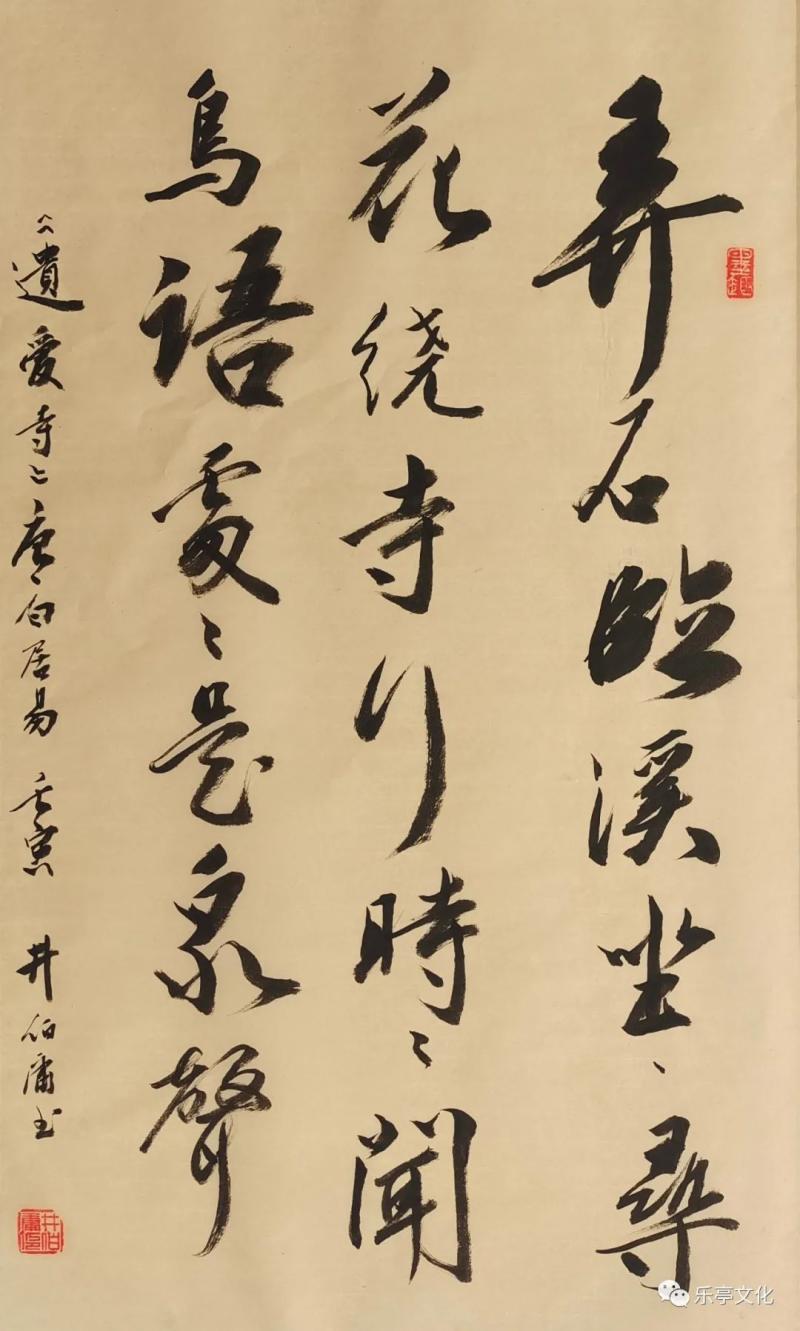 弄石臨溪坐、尋
花绕寺行時々聞
鳥語處々是泉聲
《遺愛寺》唐、白居易 壬寅 井伯庸书
井伯庸印
乐亭文化